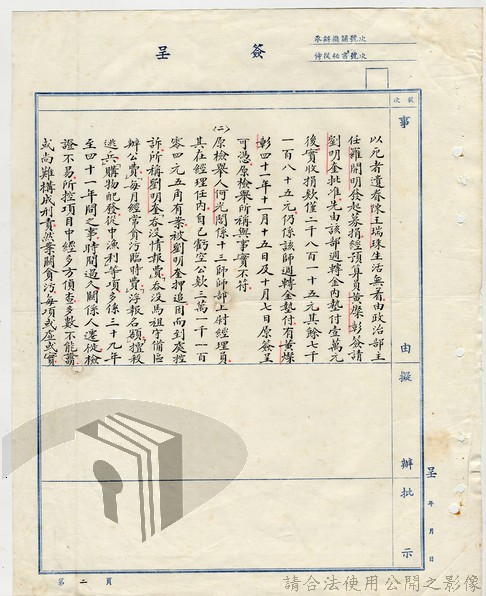 簽呈
參辦擬號次
侍從秘書號次
號次
事由
擬辦
批示
呈 年 月 日
以死者遺眷陳王瑞珠生活無着由政治部主
任羅開明發起募捐經預算員黃燦彰簽請
劉明奎批准先由該部週轉金內墊付壹萬元
後實收捐款僅二千八百一十五元其餘七千
一百八十五元仍係該師週轉金墊付有黃燦
彰四十一年十一月十五日及十月七日原簽呈
可憑原檢舉所稱與事實不符
(二)原檢舉人何光閣係十三師師部上尉經理員
其在經理任內自己虧空公款三萬一千一百
零四元五角有案被劉明奎押追因而到處控
訴所稱劉明奎吞沒情報費吞沒馬祖守備區
辦公費每月經常貪污臨時費浮報名額擅殺
逃兵購物配發從中漁利等項多係三十九年
至四十一年間之事時間過久關係人遷徙檢
證不易所控項目中經多方偵查多數不能證實
或尚難構成刑責然案關貪污每項或虛或實
第二頁
請合法使用公開之影像